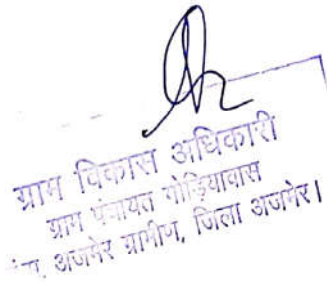 ग्राम विकास अधिकारी
ग्राम पंचायत गोड़ियावास
अजमेर ग्रामीण, जिला अजमेर।